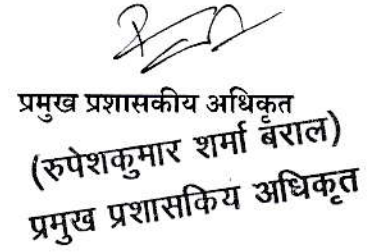 प्रमुख प्रशासकीय अधिकृत
(रुपेशकुमार शर्मा बराल)
प्रमुख प्रशासकिय अधिकृत